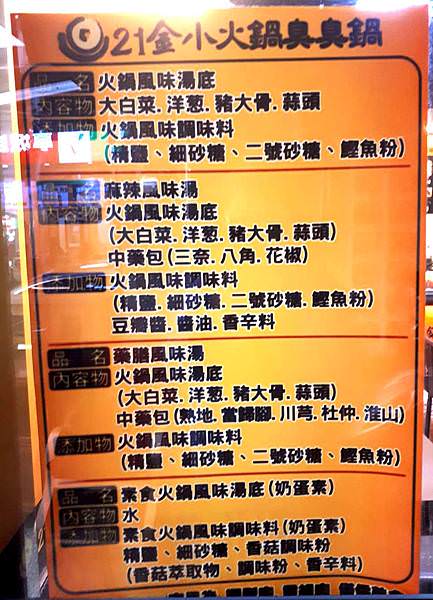 21金小火鍋臭臭鍋
品名 火鍋風味湯底
內容物 大白菜.洋葱.豬大骨.蒜頭
添加物 火鍋風味調味料
(精鹽、細砂糖、二號砂糖、鰹魚粉)
品名 麻辣風味湯
內容物 火鍋風味湯底
(大白菜.洋葱.豬大骨.蒜頭)
中藥包(三奈.八角.花椒)
添加物 火鍋風味調味料
(精鹽.細砂糖.二號砂糖.鰹魚粉)
豆瓣醬.醬油.香辛料
品名 藥膳風味湯
內容物 火鍋風味湯底
(大白菜.洋葱.豬大骨.蒜頭)
中藥包(熟地.當歸腳.川芎.杜仲.淮山)
添加物 火鍋風味調味料
(精鹽、細砂糖、二號砂糖、鰹魚粉)
品名 素食火鍋風味湯底(奶蛋素)
內容物 水
添加物 素食火鍋風味調味料(奶蛋素)
精鹽、細砂糖、香菇調味粉
(香菇萃取物、調味粉、香辛料)